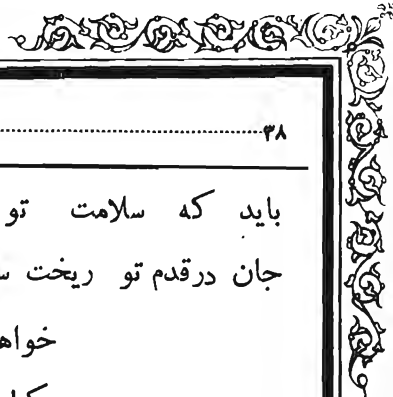 ۳۸
باید که سلامت تو
جان درقدم تو ریخت